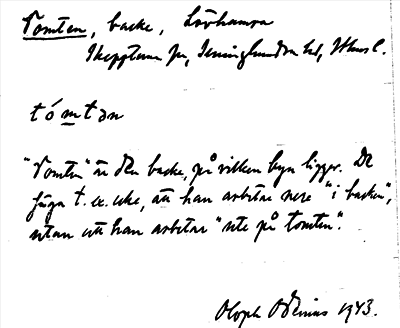 Tomten, backe, Lövhamra
Skepptuna sn, Seminghundra hd, Uhus l.
tómtən
"Tomten" är den backe, på vilken byn ligger. De
säga t. ex. icke, att han arbetar nere "i backen",
utan att han arbetar "ute på tomten".
Oloph Odenius 1943.